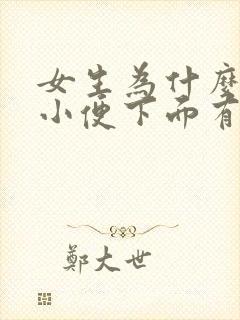 女生為什麼
小便下面有
鄭大世